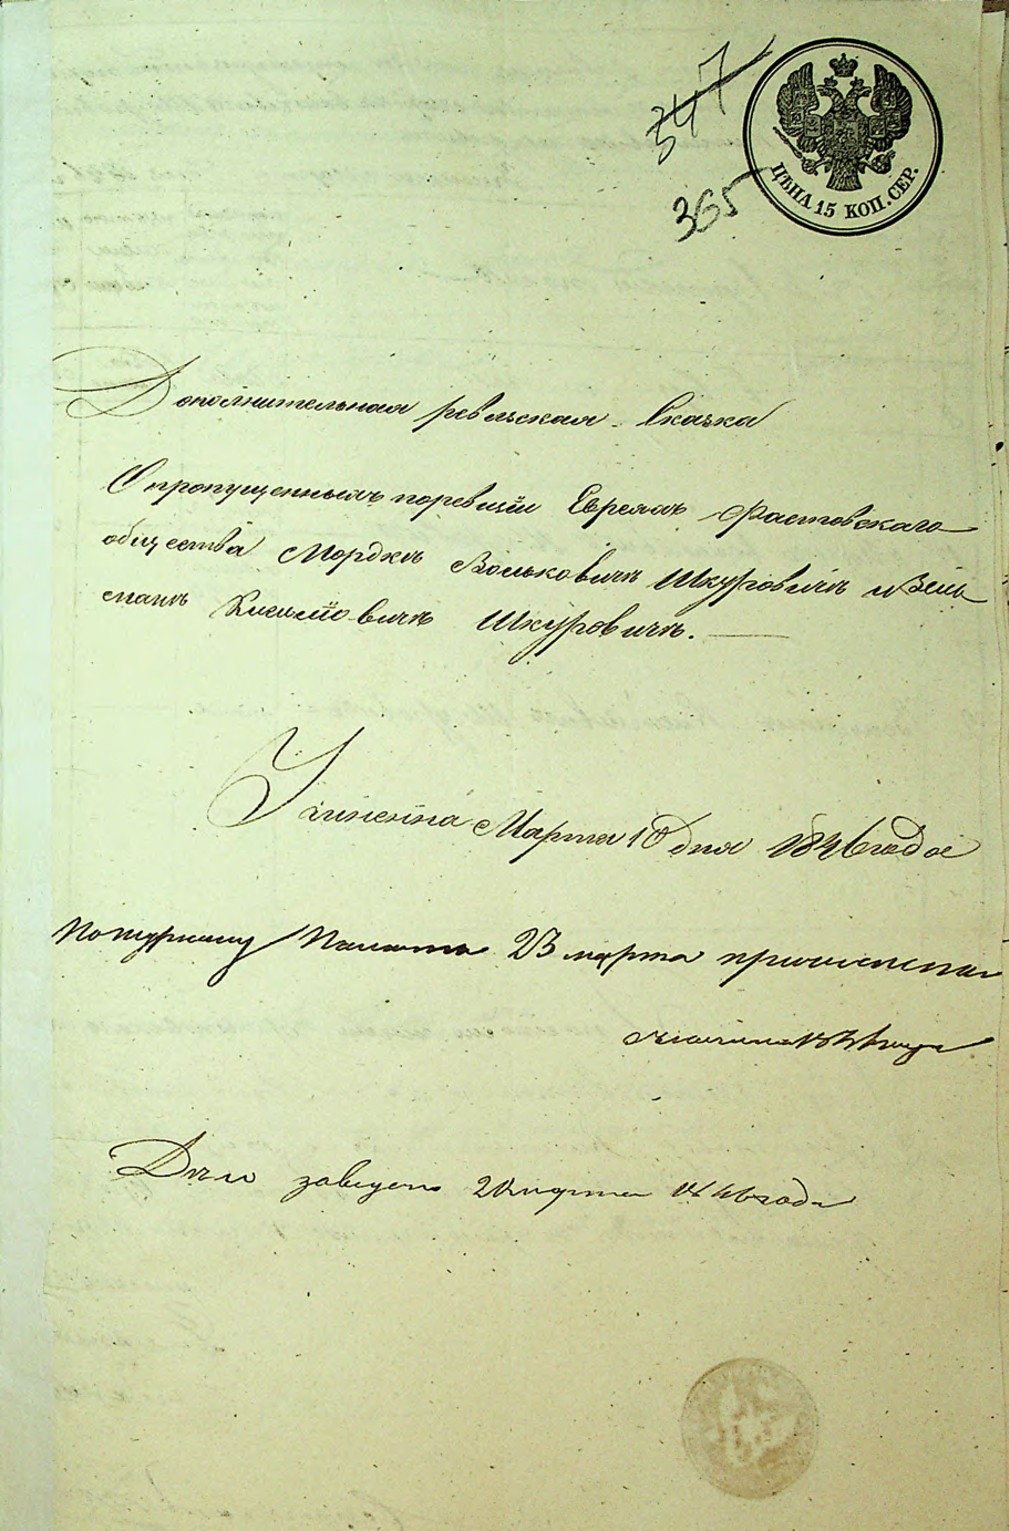 347
365
ЦѢНА 15 КОП. СЕР.
Дополнительная ревизская Сказка
О пропущенныхъ по ревизіи Евреяхъ Фастовскаго
общества Мордкѣ Вольковичѣ Шкуровичѣ и Зель
манѣ Шкуровичѣ.
Учиненна Марта 10 дня 1846 года
По журналу Палаты 23 марта
Дѣло заведено марта 1846 года